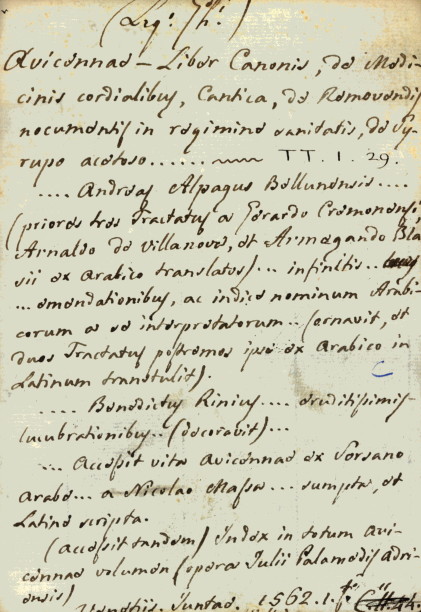 Avicennae – Liber Canonis, de Medi-
cinis cordialibus, Cantica, de Removendis
nocumentis in regimine sanitatis, de Sy-
rupo acetoso...... TT. 1. 29.
.... Andreas Alpagus Bellunensis ....
(priores tres Tractatus a Gerardo Cremonensi,
Arnaldo de Villanova, et Armegando Bla
sii ex Arabico translatos)... infinitis ..
... emendationibus, ac indice nominum Arabi-
corum a se interpretatorum .. (ornavit, et
duos Tractatus postremos ipse ex Arabico in
Latinum transtulit).
.... Benedictus Rinius .... eruditissimis
lucubrationibus .. (decoravit) ...
... Accessit vita Avicennae ex Sorsano
Arabe ... a Nicolao Massa ... sumpta, et
Latine scripta.
(Accessit tandem) Index in totum Avi-
cennae volumen (opera Julii Palamedis Adri-
ensis)
Venetiis. Juntas. 1562. 1.